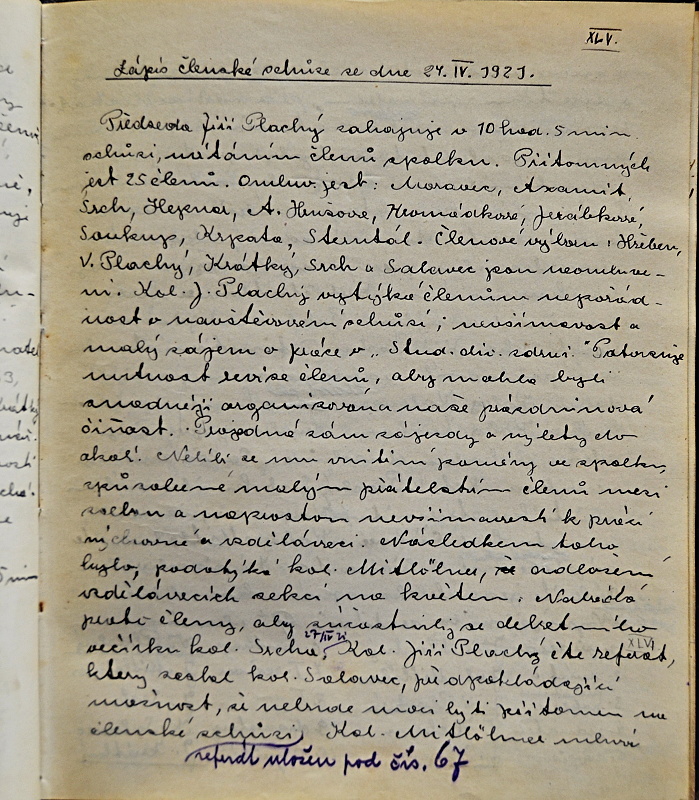 XLV.
Zápis členské schůze ze dne 24. IV. 1921.
Předseda Jiří Plachý zahajuje v 10 hod. 5 min.
schůzi, uvítáním členů spolku. Přítomných
jest 25 členů. Omluv. jest: Moravec, Axamit,
Srch, Hepnar, A. Hrušové, Hromádkové, Jeřábkové,
Soukup, Krpata, Sterntál. Členové výboru: Hřeben,
V. Plachý, Krátký, Srch a Salavec jsou neomluve-
ni. Kol. J. Plachý vytýká členům nepořád-
nost v navštěvování schůzí, nevšímavost a
malý zájem o práce v „Stud. div. sdruž."
nutnost revise členů, aby mohla býti
snadněji organisována naše prázdninová
činnost. Projedná sám zájezdy a výlety do
okolí. Nelíbí se mu vnitřní poměry ve spolku,
způsobené malým přátelstvím členů mezi
sebou a naprostou nevšímavostí k práci
výchovné a vzdělávací. Následkem toho
bylo, podotýká kol. Mitlöhner, odložení
vzdělávacích sekcí na květen. Nabádá
proto členy, aby súčastnili se debatního
27/IV 21
XLVI
večírku kol. Srcha, Kol. Jiří Plachý čte referát,
který zaslal kol. Salavec, předpokládající
možnost, že nebude moci býti přítomen na
členské schůzi. Kol. Mitlöhner mluví
referát uložen pod čís. 67